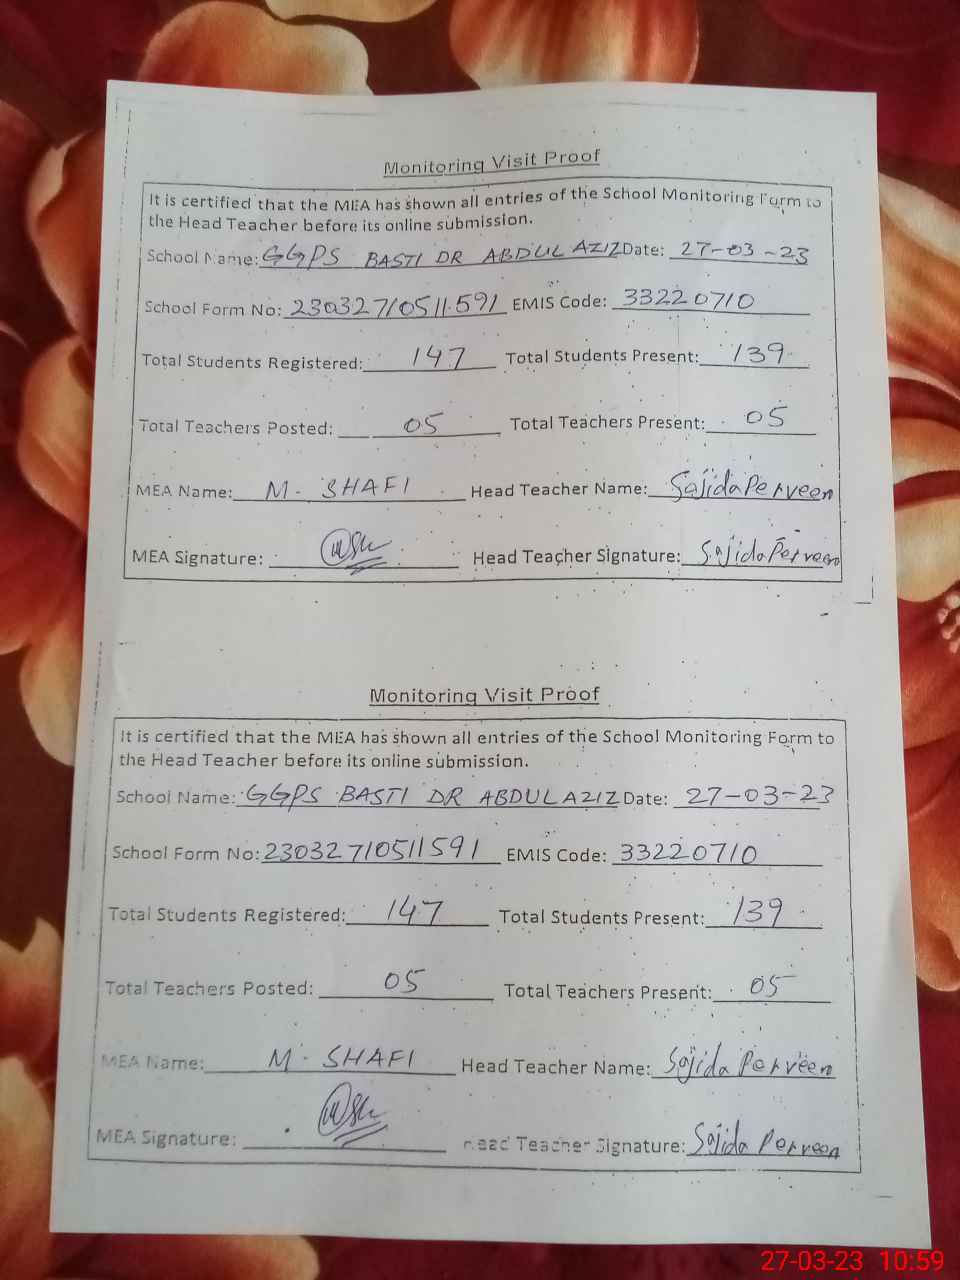 Monitoring Visit Proof
It is certified that the MEA has shown all entries of the School Monitoring Form to
the Head Teacher before its online submission.
School Name: GGPS BASTI DR ABDUL AZIZ Date: 27-03-23
School Form No: 23032710511591 EMIS Code: 33220710
Total Students Registered: 147 Total Students Present: 139
Total Teachers Posted: 05 Total Teachers Present: 05
MEA Name: M. SHAFI Head Teacher Name: Sajida Perveen
MEA Signature: Head Teacher Signature: Sajida Perveen
Monitoring Visit Proof
It is certified that the MEA has shown all entries of the School Monitoring Form to
the Head Teacher before its online submission.
School Name: GGPS BASTI DR ABDUL AZIZ Date: 27-03-23
School Form No: 23032710511591 EMIS Code: 33220710
Total Students Registered: 147 Total Students Present: 139
Total Teachers Posted: 05 Total Teachers Present: 05
MEA Name: M. SHAFI Head Teacher Name: Sajida Perveen
MEA Signature: Head Teacher Signature: Sajida Perveen
27-03-23 10:59